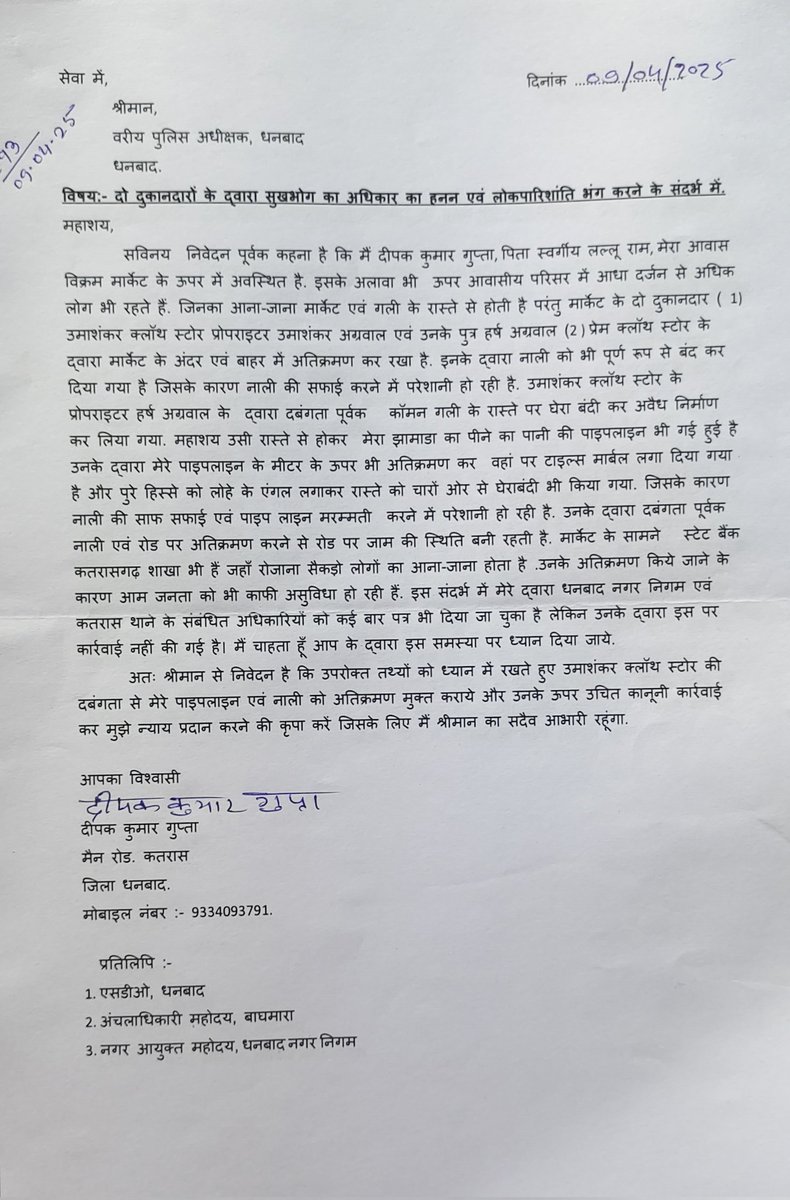 सेवा में,
दिनांक ...09/04/2025
93
09.04.25
श्रीमान,
वरीय पुलिस अधीक्षक, धनबाद
धनबाद.
विषय:- दो दुकानदारों के द्वारा सुखभोग का अधिकार का हनन एवं लोकपारिशांति भंग करने के संदर्भ में.
महाशय,
सविनय निवेदन पूर्वक कहना है कि मैं दीपक कुमार गुप्ता, पिता स्वर्गीय लल्लू राम, मेरा आवास
विक्रम मार्केट के ऊपर में अवस्थित है. इसके अलावा भी ऊपर आवासीय परिसर में आधा दर्जन से अधिक
लोग भी रहते हैं. जिनका आना-जाना मार्केट एवं गली के रास्ते से होती है परंतु मार्केट के दो दुकानदार ( 1)
उमाशंकर क्लॉथ स्टोर प्रोपराइटर उमाशंकर अग्रवाल एवं उनके पुत्र हर्ष अग्रवाल (2) प्रेम क्लॉथ स्टोर के
द्वारा मार्केट के अंदर एवं बाहर में अतिक्रमण कर रखा है. इनके द्वारा नाली को भी पूर्ण रूप से बंद कर
दिया गया है जिसके कारण नाली की सफाई करने में परेशानी हो रही है. उमाशंकर क्लॉथ स्टोर के
प्रोपराइटर हर्ष अग्रवाल के द्वारा दबंगता पूर्वक कॉमन गली के रास्ते पर घेरा बंदी कर अवैध निर्माण
कर लिया गया. महाशय उसी रास्ते से होकर मेरा झामाडा का पीने का पानी की पाइपलाइन भी गई हुई है
उनके द्वारा मेरे पाइपलाइन के मीटर के ऊपर भी अतिक्रमण कर वहां पर टाइल्स मार्बल लगा दिया गया
है और पुरे हिस्से को लोहे के एंगल लगाकर रास्ते को चारों ओर से घेराबंदी भी किया गया. जिसके कारण
नाली की साफ सफाई एवं पाइप लाइन मरम्मती करने में परेशानी हो रही है. उनके द्वारा दबंगता पूर्वक
नाली एवं रोड पर अतिक्रमण करने से रोड पर जाम की स्थिति बनी रहती है. मार्केट के सामने स्टेट बैंक
कतरासगढ़ शाखा भी हैं जहाँ रोजाना सैकड़ो लोगों का आना-जाना होता है .उनके अतिक्रमण किये जाने के
कारण आम जनता को भी काफी असुविधा हो रही हैं. इस संदर्भ में मेरे द्वारा धनबाद नगर निगम एवं
कतरास थाने के संबंधित अधिकारियों को कई बार पत्र भी दिया जा चुका है लेकिन उनके द्वारा इस पर
कार्रवाई नहीं की गई है। मैं चाहता हूँ आप के द्वारा इस समस्या पर ध्यान दिया जाये.
अतः श्रीमान से निवेदन है कि उपरोक्त तथ्यों को ध्यान में रखते हुए उमाशंकर क्लॉथ स्टोर की
दबंगता से मेरे पाइपलाइन एवं नाली को अतिक्रमण मुक्त कराये और उनके ऊपर उचित कानूनी कार्रवाई
कर मुझे न्याय प्रदान करने की कृपा करें जिसके लिए मैं श्रीमान का सदैव आभारी रहूंगा.
आपका विश्वासी
दीपक कुमार गुप्ता
दीपक कुमार गुप्ता
मैन रोड. कतरास
जिला धनबाद.
मोबाइल नंबर :- 9334093791.
प्रतिलिपि :-
1. एसडीओ, धनबाद
2. अंचलाधिकारी महोदय, बाघमारा
3. नगर आयुक्त महोदय, धनबाद नगर निगम